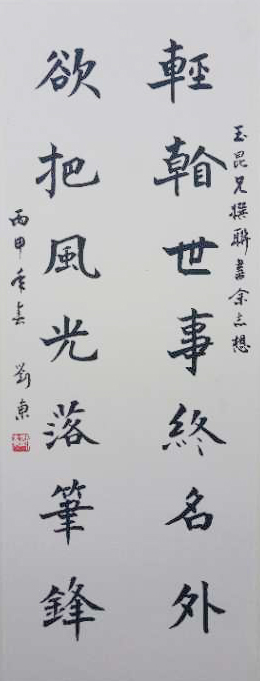 玉昆兄撰聯書余志想
輕翰世事終名外
欲把風光落筆鋒
丙申年春 劉東